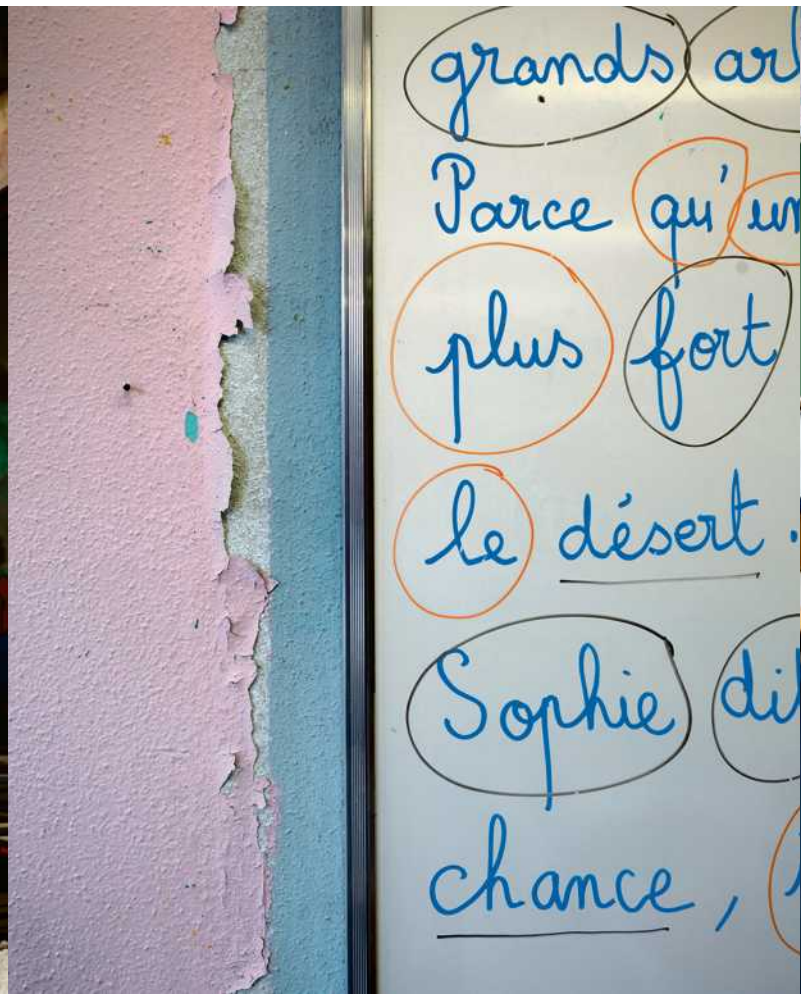 grands
Parce qu'un
plus fort
le désert.
Sophie dit
chance,